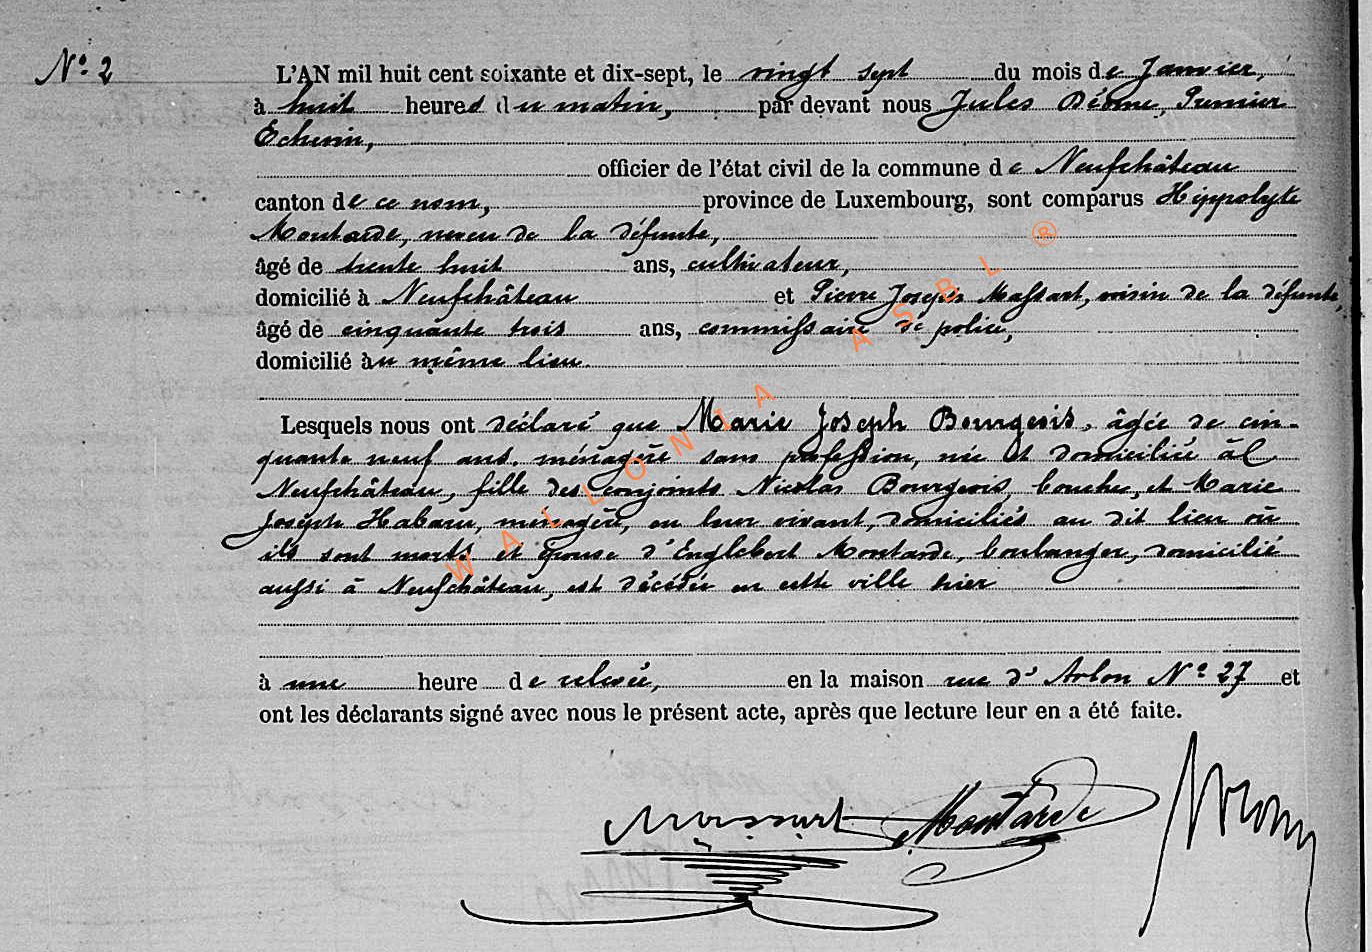 Nº 2
L'AN mil huit cent soixante et dix-sept, le vingt sept du mois de Janvier,
à huit heures du matin, par devant nous Jules Premier
Echevin,
officier de l'état civil de la commune de Neufchâteau
canton de ce nom, province de Luxembourg, sont comparus Hippolyte
Montarde, neveu de la défunte,
âgé de trente huit ans, cultivateur,
domicilié à Neufchâteau et Pierre Joseph Massart, voisin de la défunte,
âgé de cinquante trois ans, commissaire de police,
domicilié au même lieu.
Lesquels nous ont déclaré que Marie Joseph Bourgeois, âgée de cin-
quante neuf ans, ménagère sans profession, née et domiciliée à
Neufchâteau, fille des conjoints Nicolas Bourgeois, boucher, et Marie
Joseph Habaru, ménagère, en leur vivant, domiciliés au dit lieu où
ils sont morts et épouse d'Englebert Montarde, boulanger, domicilié
aussi à Neufchâteau, est décédée en cette ville hier
à une heure de relevée, en la maison rue d'Arlon Nº 27 et
ont les déclarants signé avec nous le présent acte, après que lecture leur en a été faite.
Massart Montarde
WALLONIA ASBL ®